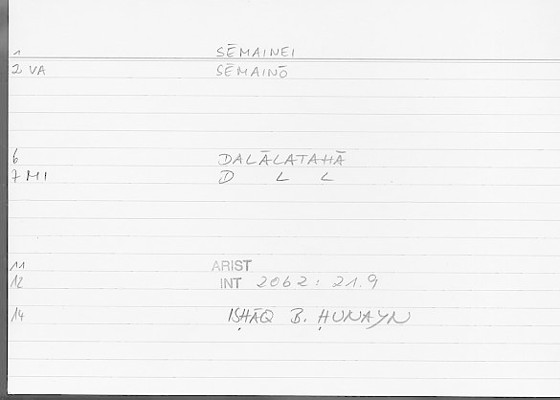 1 SĒMAINEI
2 VA SĒMAINŌ
6 DALĀLATAHĀ
7 MI D L L
11 ARIST
12 INT 2062 : 21.9
14 ISḤĀQ B. ḤUNAYN